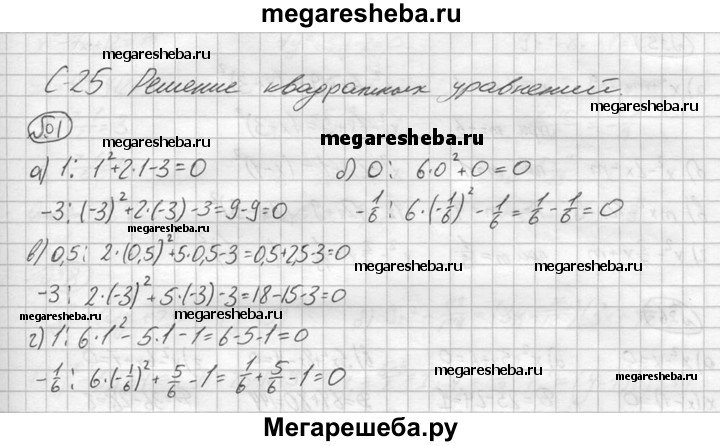 megaresheba.ru
megaresheba.ru
С-25 Решение квадратных уравнений.
megaresheba.ru
№1
megaresheba.ru
megaresheba.ru
а) 1: 1² + 2·1 - 3 = 0
б) 0: 6·0² + 0 = 0
-3: (-3)² + 2·(-3) - 3 = 9 - 9 = 0
-1/6: 6·(-1/6)² - 1/6 = 1/6 - 1/6 = 0
megaresheba.ru
megaresheba.ru
в) 0,5: 2·(0,5)² + 5·0,5 - 3 = 0,5 + 2,5 - 3 = 0
megaresheba.ru
megaresheba.ru
-3: 2·(-3)² + 5·(-3) - 3 = 18 - 15 - 3 = 0
megaresheba.ru
megaresheba.ru
г) 1: 6·1² - 5·1 - 1 = 6 - 5 - 1 = 0
megaresheba.ru
-1/6: 6·(-1/6)² + 5/6 - 1 = 1/6 + 5/6 - 1 = 0
megaresheba.ru
Мегарешеба.ру